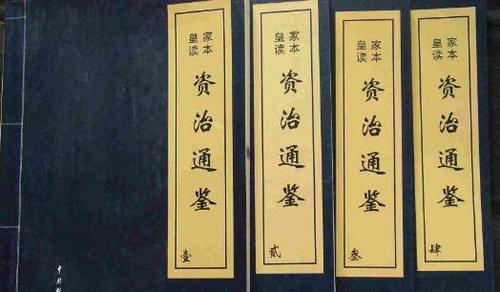 皇家
读本
资治通鉴
壹
皇家
读本
资治通鉴
贰
皇家
读本
资治通鉴
叁
皇家
读本
资治通鉴
肆